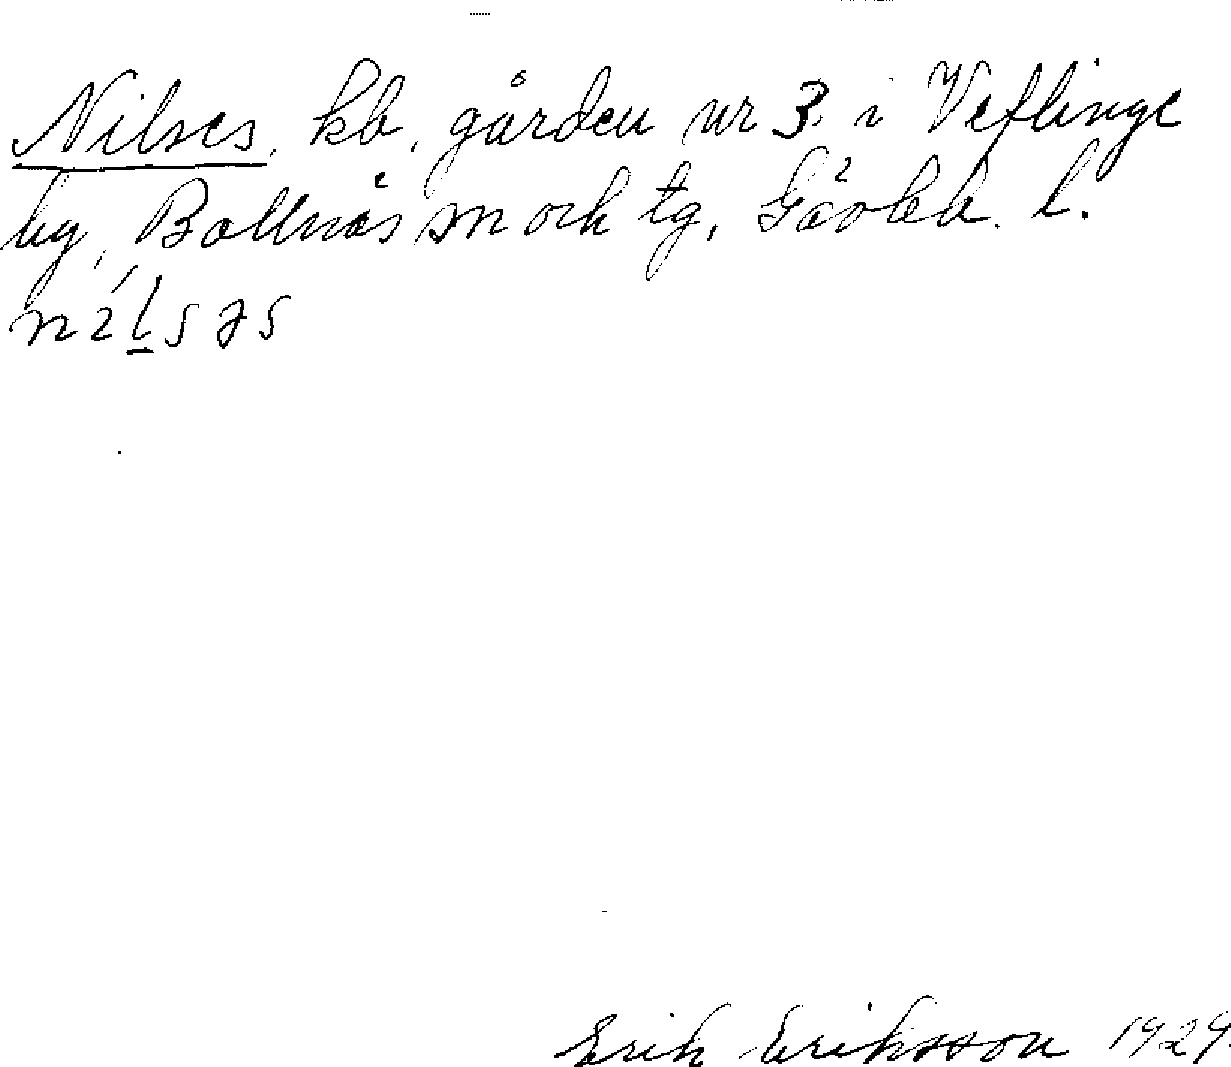 Nilses, kb, gården nr 3 i Veflinge
by, Bollnäs sn och tg, Gävleb. l.
nílsəs
Erik Eriksson 1929.